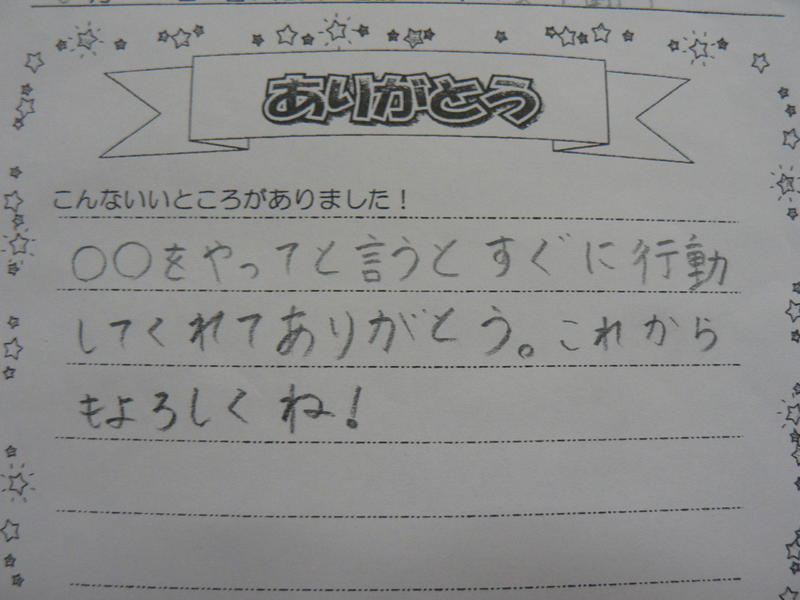 ありがとう
こんないいところがありました！
○○をやってと言うとすぐに行動
してくれてありがとう。これから
もよろしくね！